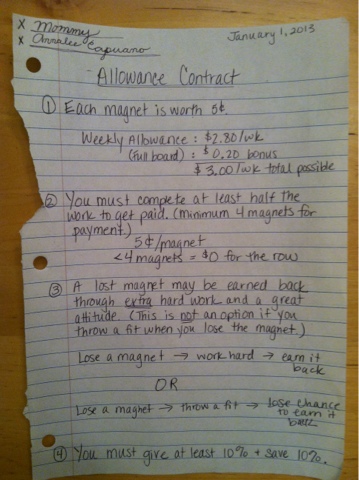 x Mommy
x Annalee Capuano
January 1, 2013
Allowance Contract
① Each magnet is worth 5¢.
Weekly Allowance : $2.80/wk
(full board) : $0.20 bonus
$3.00/wk total possible
② You must compete at least half the
work to get paid. (minimum 4 magnets for
payment.)
5¢/magnet
<4 magnets = $0 for the row
③ A lost magnet may be earned back
through extra hard work and a great
attitude. (This is not an option if you
throw a fit when you lose the magnet.)
Lose a magnet → work hard → earn it
back
OR
Lose a magnet → throw a fit → lose chance
to earn it
back
④ You must give at least 10% + save 10%.